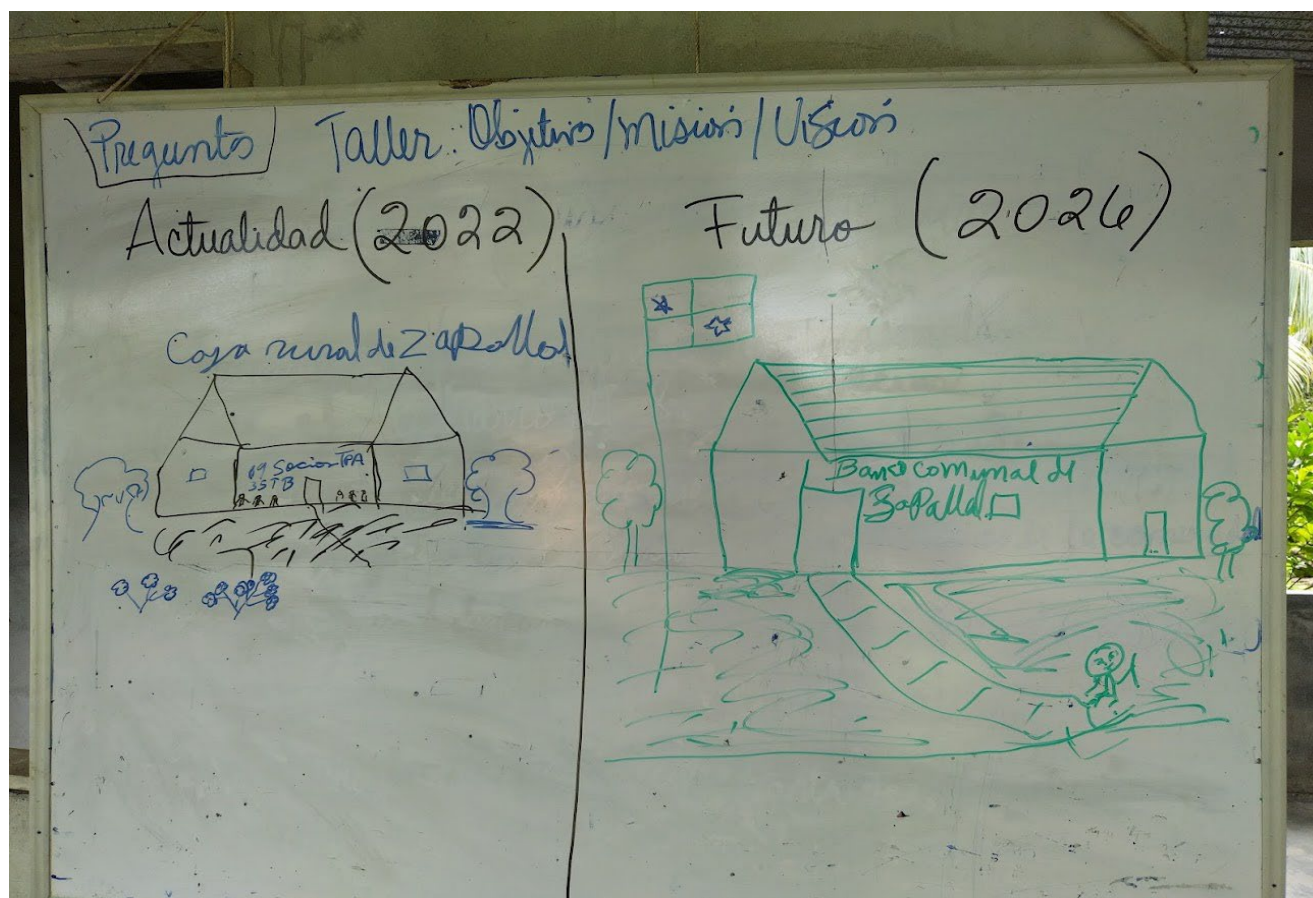 Preguntas Taller: Objetivo/misión/Visión
Actualidad (2022)
Futuro (2026)
Caja rural de Zapallal
09 Socios TPA
3STB
Banco comunal de
Zapallal